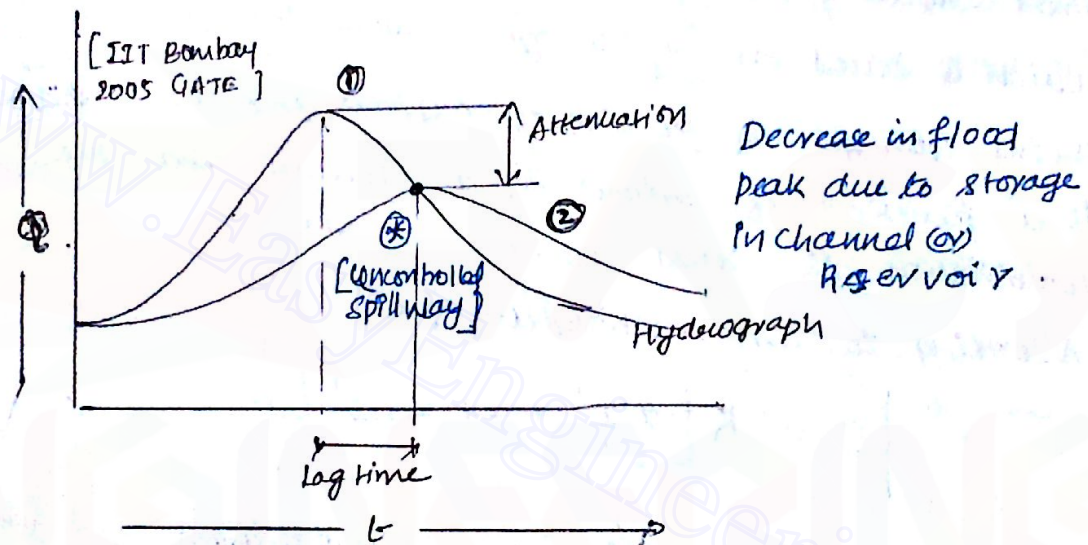 [IIT Bombay
2005 GATE]
①
Attenuation
Decrease in flood
peak due to storage
in channel (or)
Reservoir.
②
*
[Uncontrolled
spillway]
Hydrograph
Lag time
t
www.EasyEngineeri